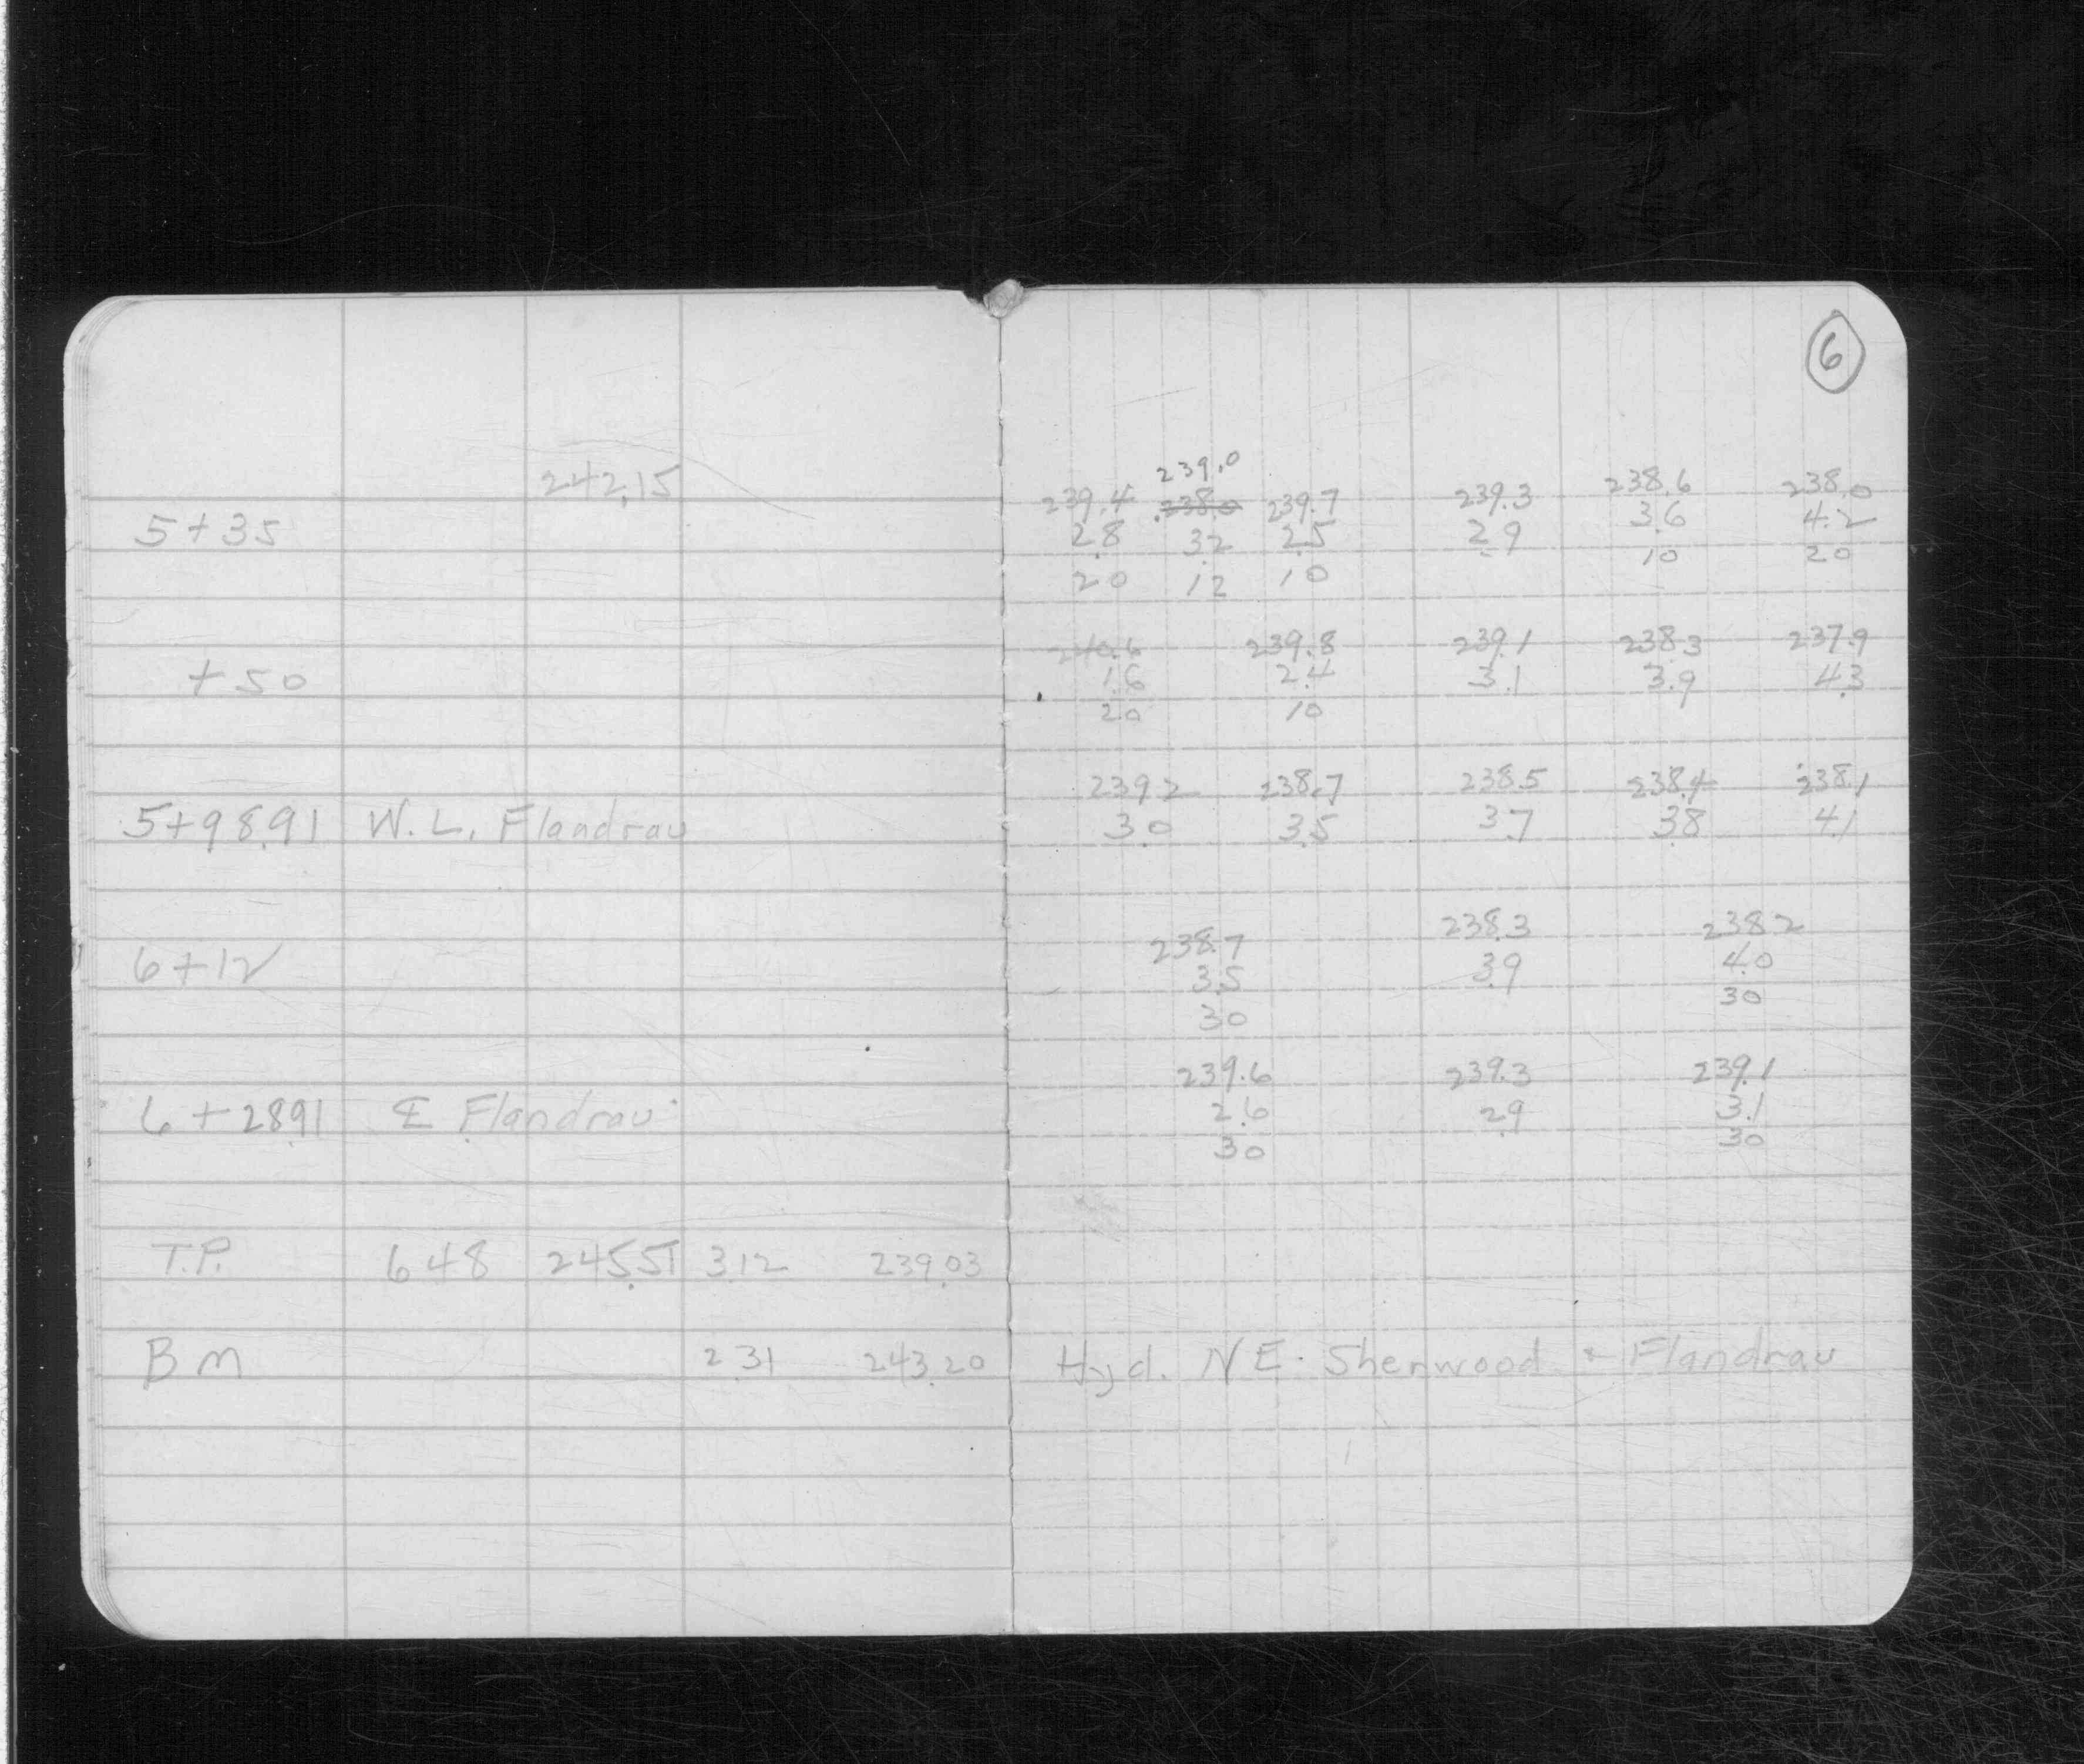 6
242.15
239.0
239.4 238.0 239.7 239.3 238.6 238.0
5+35 2.8 3.2 2.5 2.9 3.6 4.2
20 12 10 10 20
240.6 239.8 239.1 238.3 237.9
+50 1.6 2.4 3.1 3.9 4.3
20 10
239.2 238.7 238.5 238.4 238.1
5+98.91 W. L. Flandrau 3.0 3.5 3.7 3.8 4.1
238.7 238.3 238.2
6+12 3.5 3.9 4.0
30 30
239.6 239.3 239.1
6+28.91 Flandrau 2.6 2.9 3.1
30 30
T.P. 6.48 245.51 3.12 239.03
B M 2.31 243.20 Hyd. N E. Sherwood & Flandrau